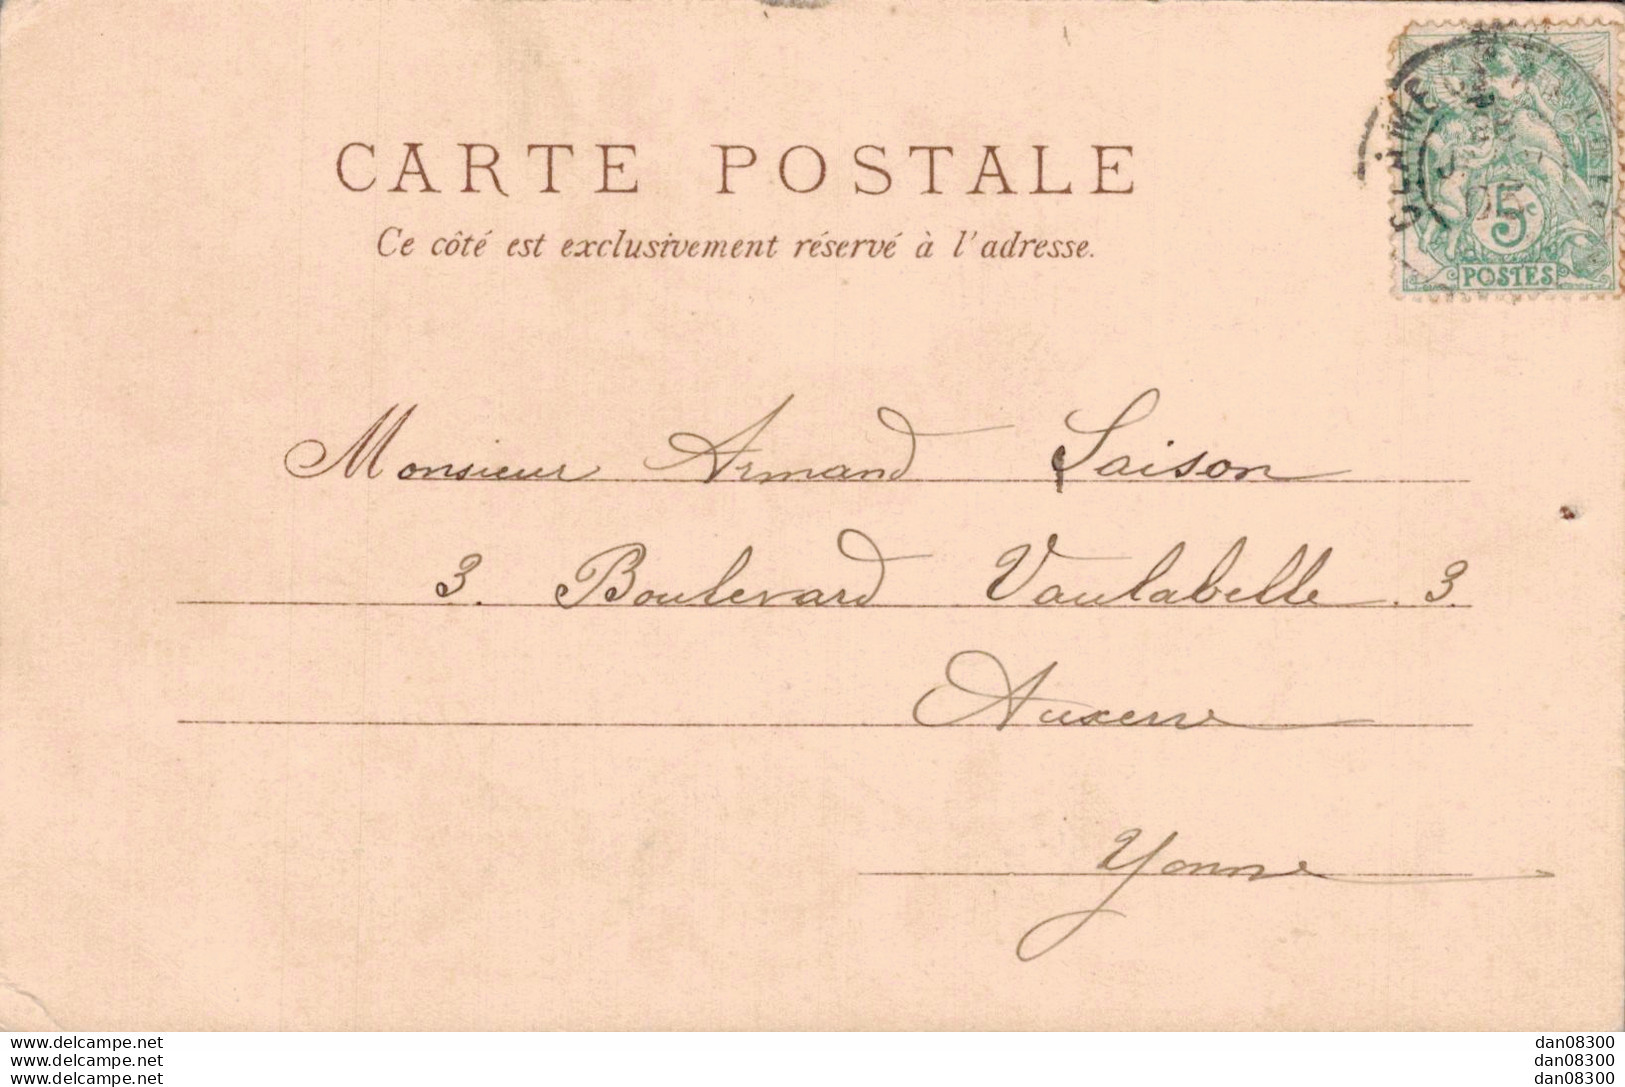 CARTE POSTALE
Ce côté est exclusivement réservé à l'adresse.
05
5c
POSTES
Monsieur Armand Saison
3. Boulevard Vaulabelle. 3.
Auxerre
Yonne
www.delcampe.net dan08300
www.delcampe.net dan08300
www.delcampe.net dan08300